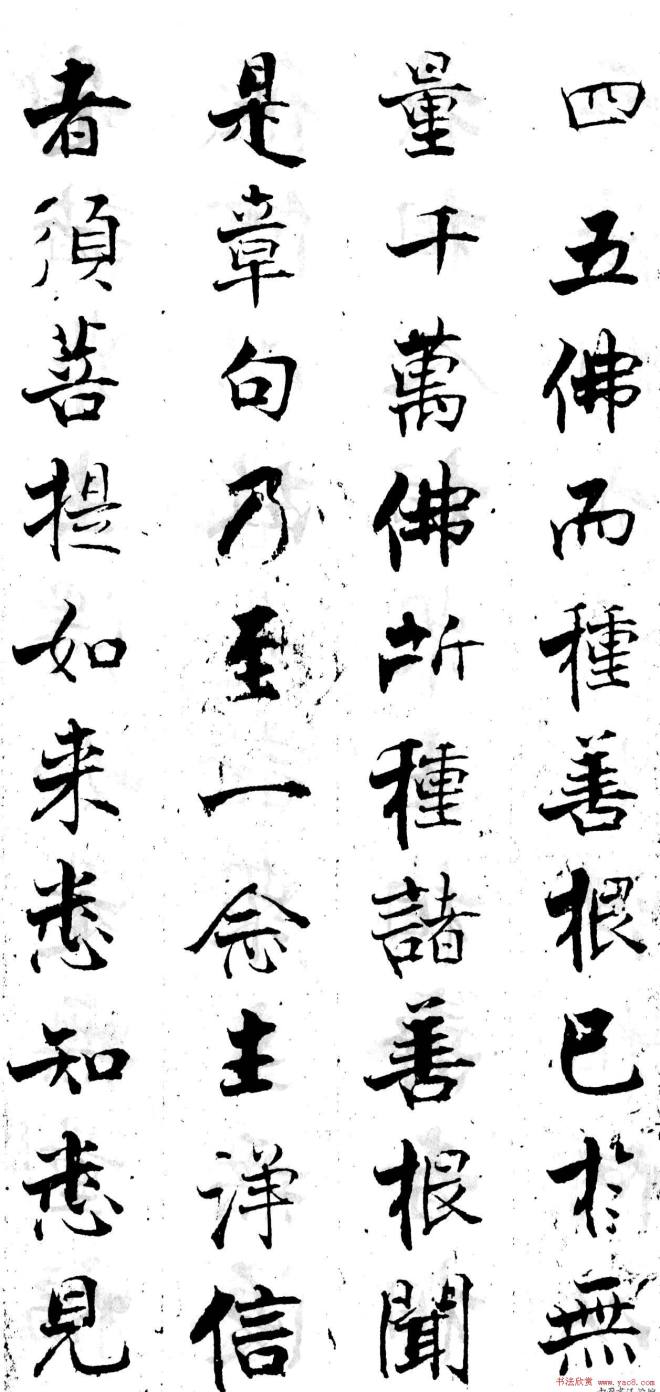 四五佛而種善根已於無
量千萬佛所種諸善根聞
是章句乃至一念生淨信
者須菩提如来悉知悉見
书法欣赏
www.yac8.com